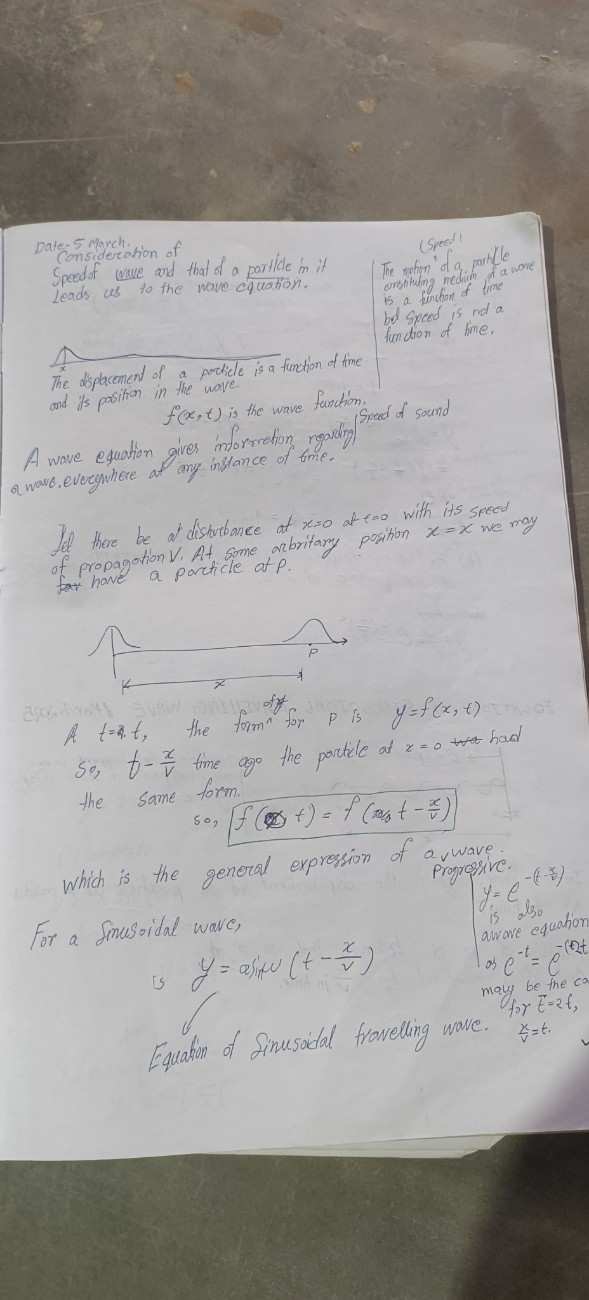 Date-5 March.
Consideration of
Speed of wave and that of a particle in it
leads us to the wave equation.
(Speed)
The motion of a particle
constituting medium of a wave
is a function of time
but speed is not a
function of time.
x
The displacement of a particle is a function of time
and its position in the wave.
f(x,t) is the wave function.
A wave equation gives information regarding speed of sound
a wave, everywhere at any instance of time.
Let there be at disturbance at x=0 at t=0 with its speed
of propagation V. At some arbritary position x=x we may
have a particle at P.
P
x
A t=t, the form of y for P is y=f(x,t)
So, t-x/v time ago the particle at x=0 had
the same form.
so, f( t) = f( t-x/v)
which is the general expression of a wave.
Progressive.
For a Sinusoidal wave,
is y = asinω (t-x/v)
Equation of Sinusoidal travelling wave.
y=e^-(t-x/v)
is also
a wave equation
as e^-t = e
may be the
for t=2t,
x/v=t.